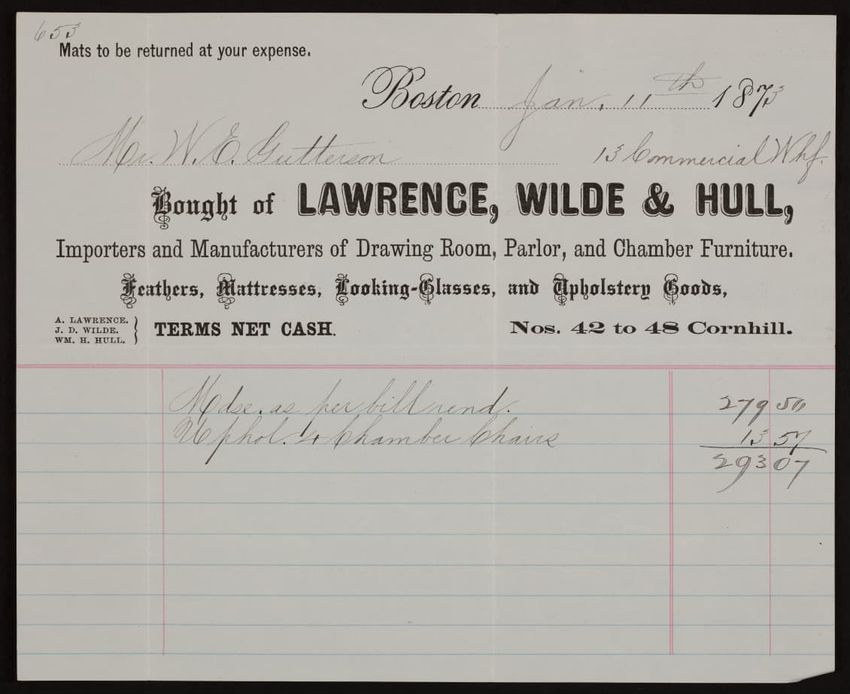 653
Mats to be returned at your expense.
Boston Jan. 11th 1873
Mr. W. E. Gutterson 13 Commercial Whf.
Bought of LAWRENCE, WILDE & HULL,
Importers and Manufacturers of Drawing Room, Parlor, and Chamber Furniture.
Feathers, Mattresses, Looking-Glasses, and Upholstery Goods,
A. LAWRENCE.
J. D. WILDE.
WM. H. HULL.
TERMS NET CASH. Nos. 42 to 48 Cornhill.
Mdse. as per bill rend. 279 50
Uphol. 4 Chamber Chairs 13 57
293 07